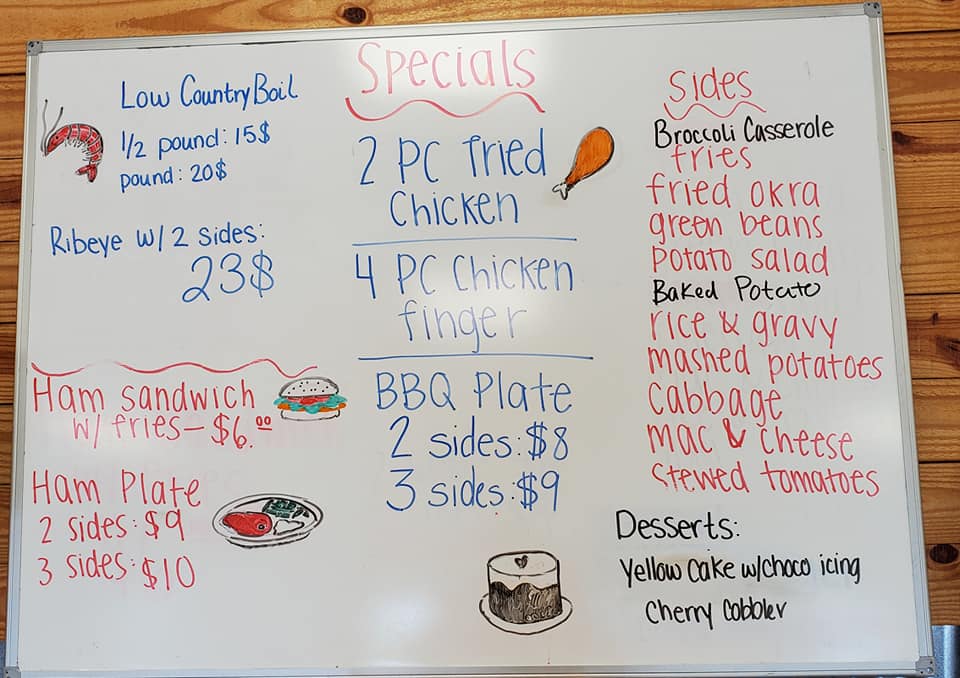 Specials
Low Country Boil
1/2 pound: 15$
pound: 20$
Ribeye w/ 2 sides:
23$
Ham sandwich
w/ fries – $6.00
Ham Plate
2 sides: $9
3 sides: $10
2 PC fried
Chicken
4 PC Chicken
finger
BBQ Plate
2 sides: $8
3 sides: $9
Sides
Broccoli Casserole
fries
fried okra
green beans
potato salad
Baked Potato
rice & gravy
mashed potatoes
cabbage
mac & cheese
stewed tomatoes
Desserts:
Yellow Cake w/choco icing
Cherry Cobbler